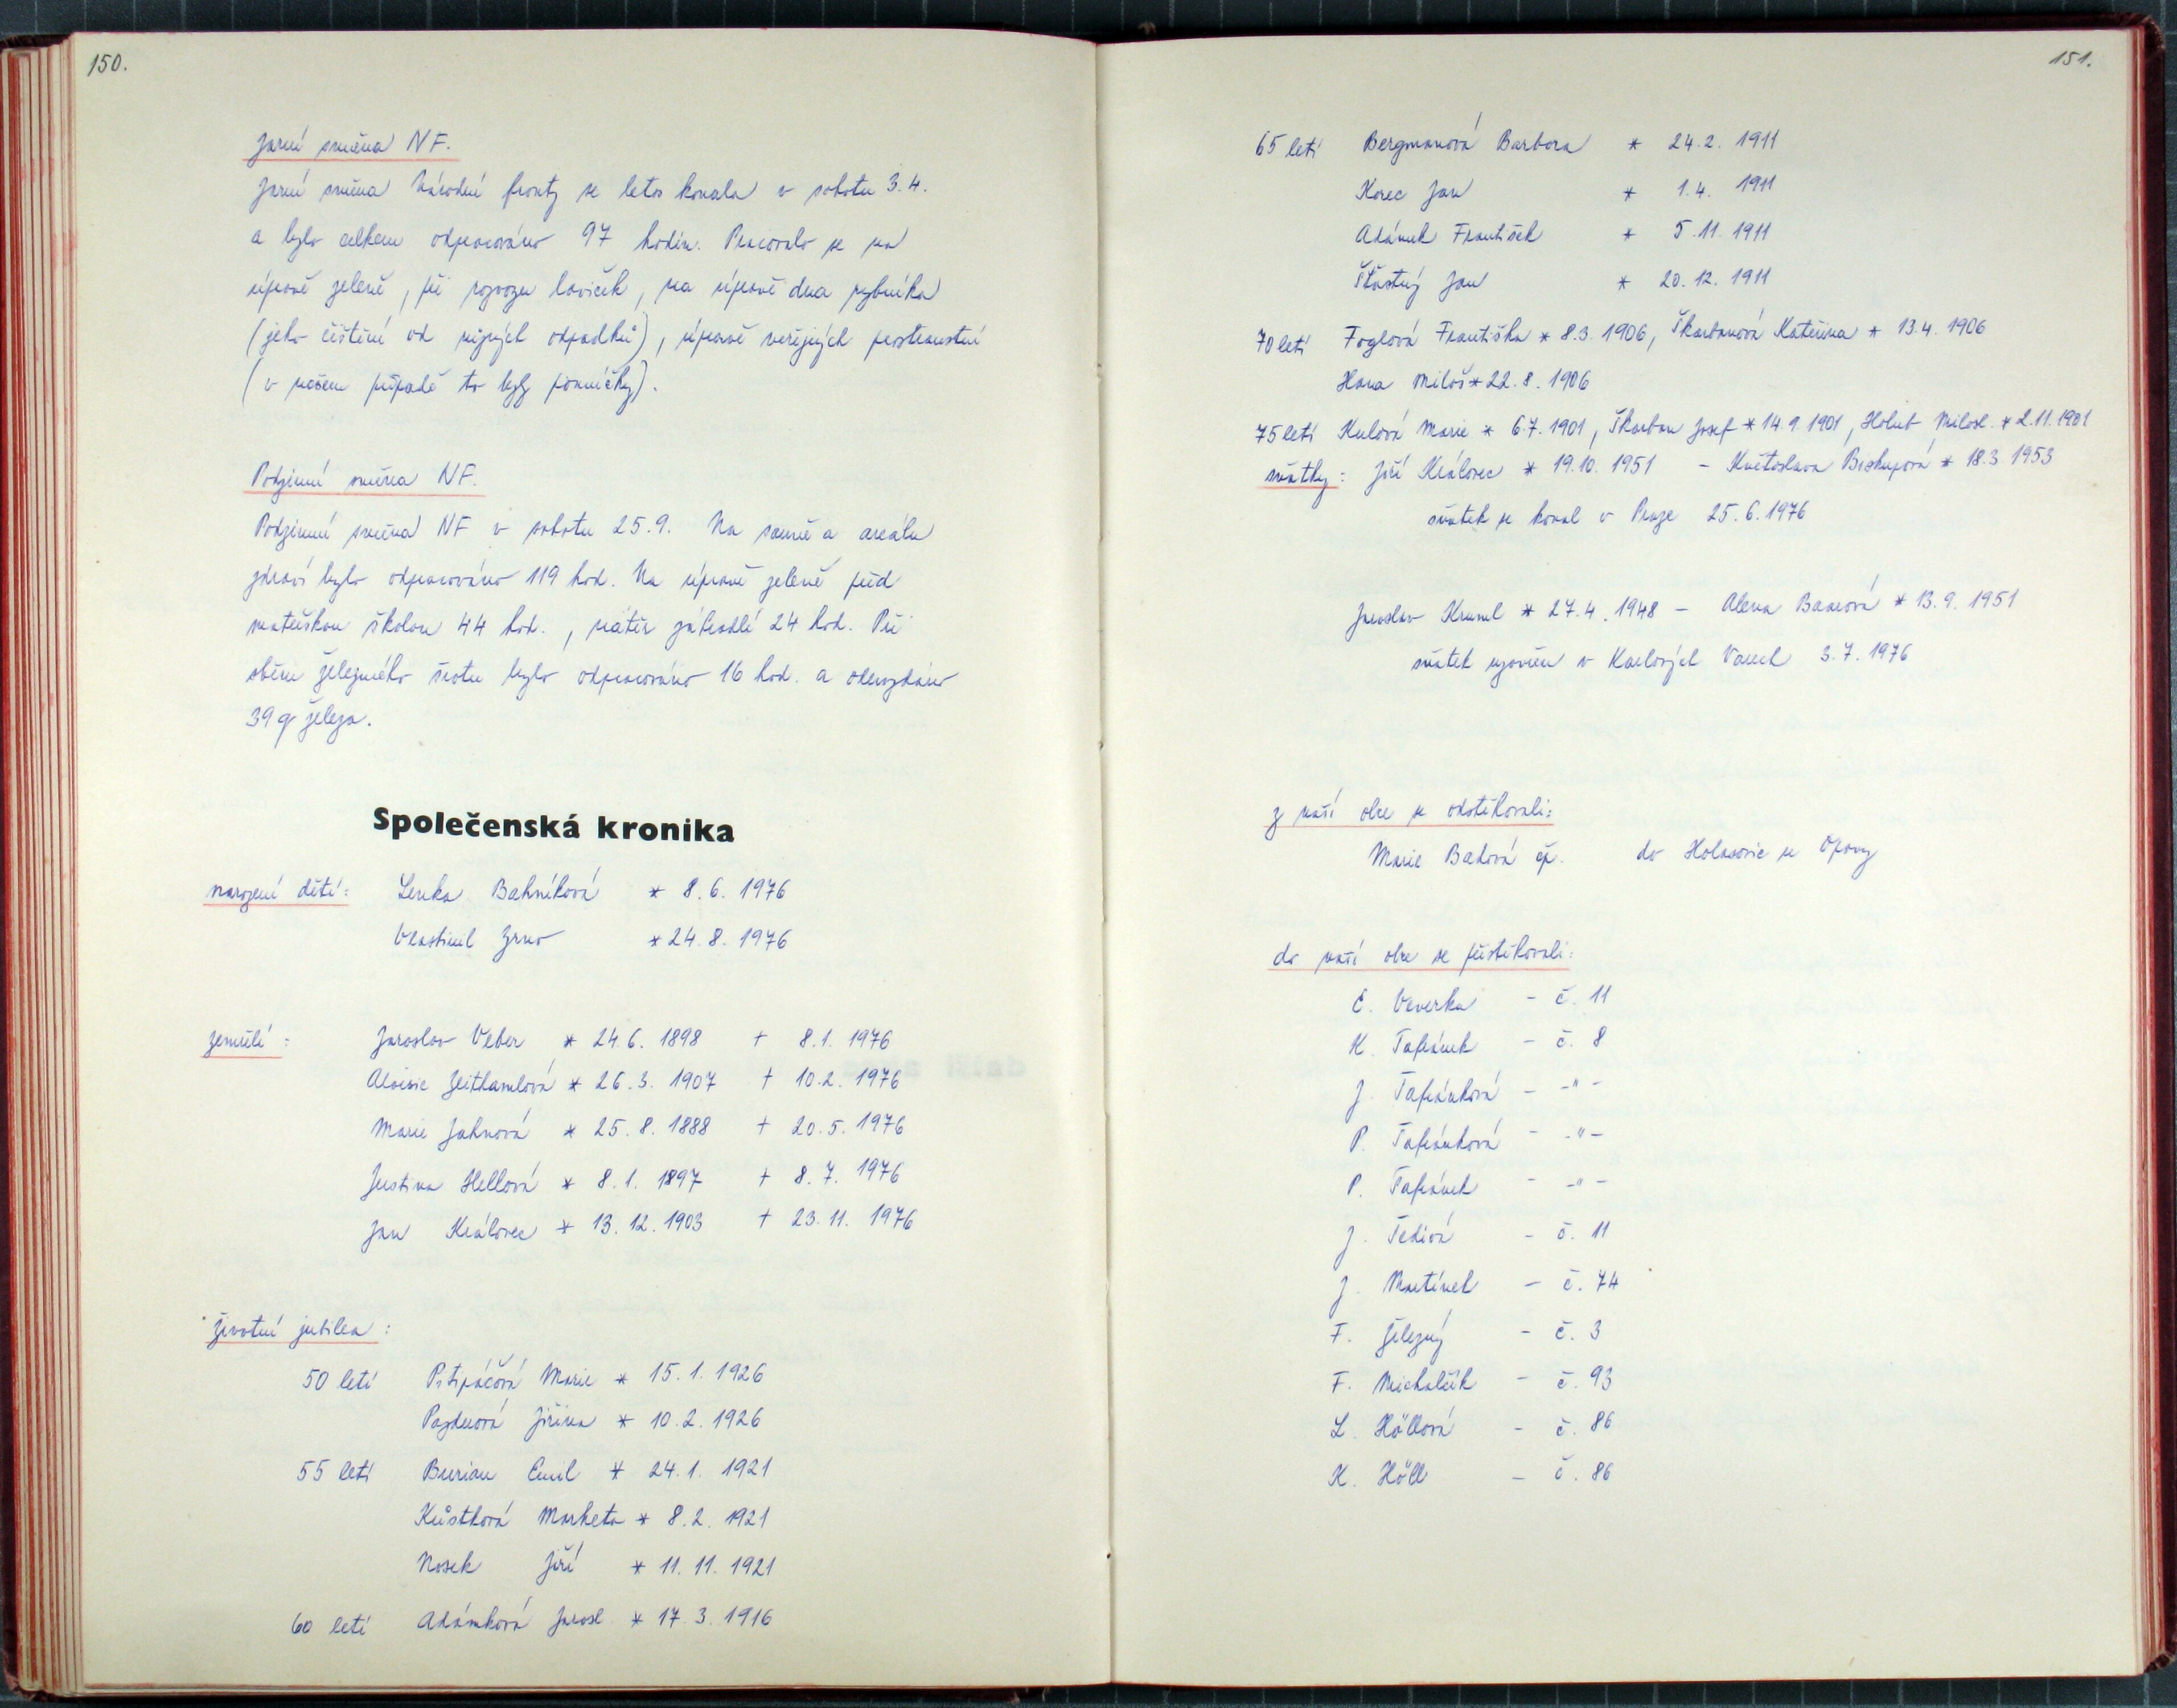 150.
Jarní směna NF.
Jarní směna Národní fronty se letos konala v sobotu 3.4.
a bylo celkem odpracováno 97 hodin. Pracovalo se na
úpravě zeleně, při rozvozu laviček, na úpravě dna rybníka
(jeho čištění od různých odpadků), úpravě veřejných prostranství
(v našem případě to byly pomníčky).
Podzimní směna NF.
Podzimní směna NF v sobotu 25.9. Na sauně a areálu
zdraví bylo odpracováno 119 hod. Na úpravě zeleně před
mateřskou školou 44 hod., nátěr zábradlí 24 hod. Při
sběru železného šrotu bylo odpracováno 16 hod. a odevzdáno
39 q železa.
Společenská kronika
narození dětí: Lenka Bahníková * 8.6. 1976
Vlastimil Zrno * 24.8. 1976
zemřelí: Jaroslav Veber * 24.6. 1898 + 8.1. 1976
Aloisie Zeithamlová * 26.3. 1907 + 10.2. 1976
Marie Jahnová * 25.8. 1888 + 20.5. 1976
Justina Hellová * 8.1. 1897 + 8.7. 1976
Jan Královec * 13.12. 1903 + 23.11. 1976
životní jubilea:
50 letí Pitipáčová Marie * 15.1. 1926
Pazderová Jiřina * 10.2. 1926
55 letí Burian Emil * 24.1. 1921
Kůstková Marketa * 8.2. 1921
Nosek Jiří * 11.11. 1921
60 letí Adámková Jarosl. * 17.3. 1916
151.
65 letí Bergmanová Barbora * 24.2. 1911
Korec Jan * 1.4. 1911
Adámek František * 5.11. 1911
Šťastný Jan * 20.12. 1911
70 letí Foglová Františka * 8.3. 1906, Škarbanová Kateřina * 13.4. 1906
Hana Miloš * 22.8. 1906
75 letí Kulová Marie * 6.7. 1901, Škarban Josef * 14.9. 1901, Holub Milosl. * 2.11.1901
svatky: Jiří Královec * 19.10. 1951 - Květoslava Biskupová * 18.3. 1953
svatek se konal v Praze 25.6.1976
Jaroslav Kruml * 27.4. 1948 - Alena * 13.9. 1951
svatek uzavřen v Karlových Varech 3.7. 1976
z naší obce se odstěhovali:
Marie Badová čp. do Holasovic u Opavy
do naší obce se přistěhovali:
E. Veverka - č. 11
K. Tafránek - č. 8
J. Tafránková - -"-
P. Tafránková - -"-
P. Tafránek - -"-
J. - č. 11
J. Martínek - č. 74
F. Železný - č. 3
F. Michalčík - č. 93
L. Höllová - č. 86
K. Höll - č. 86